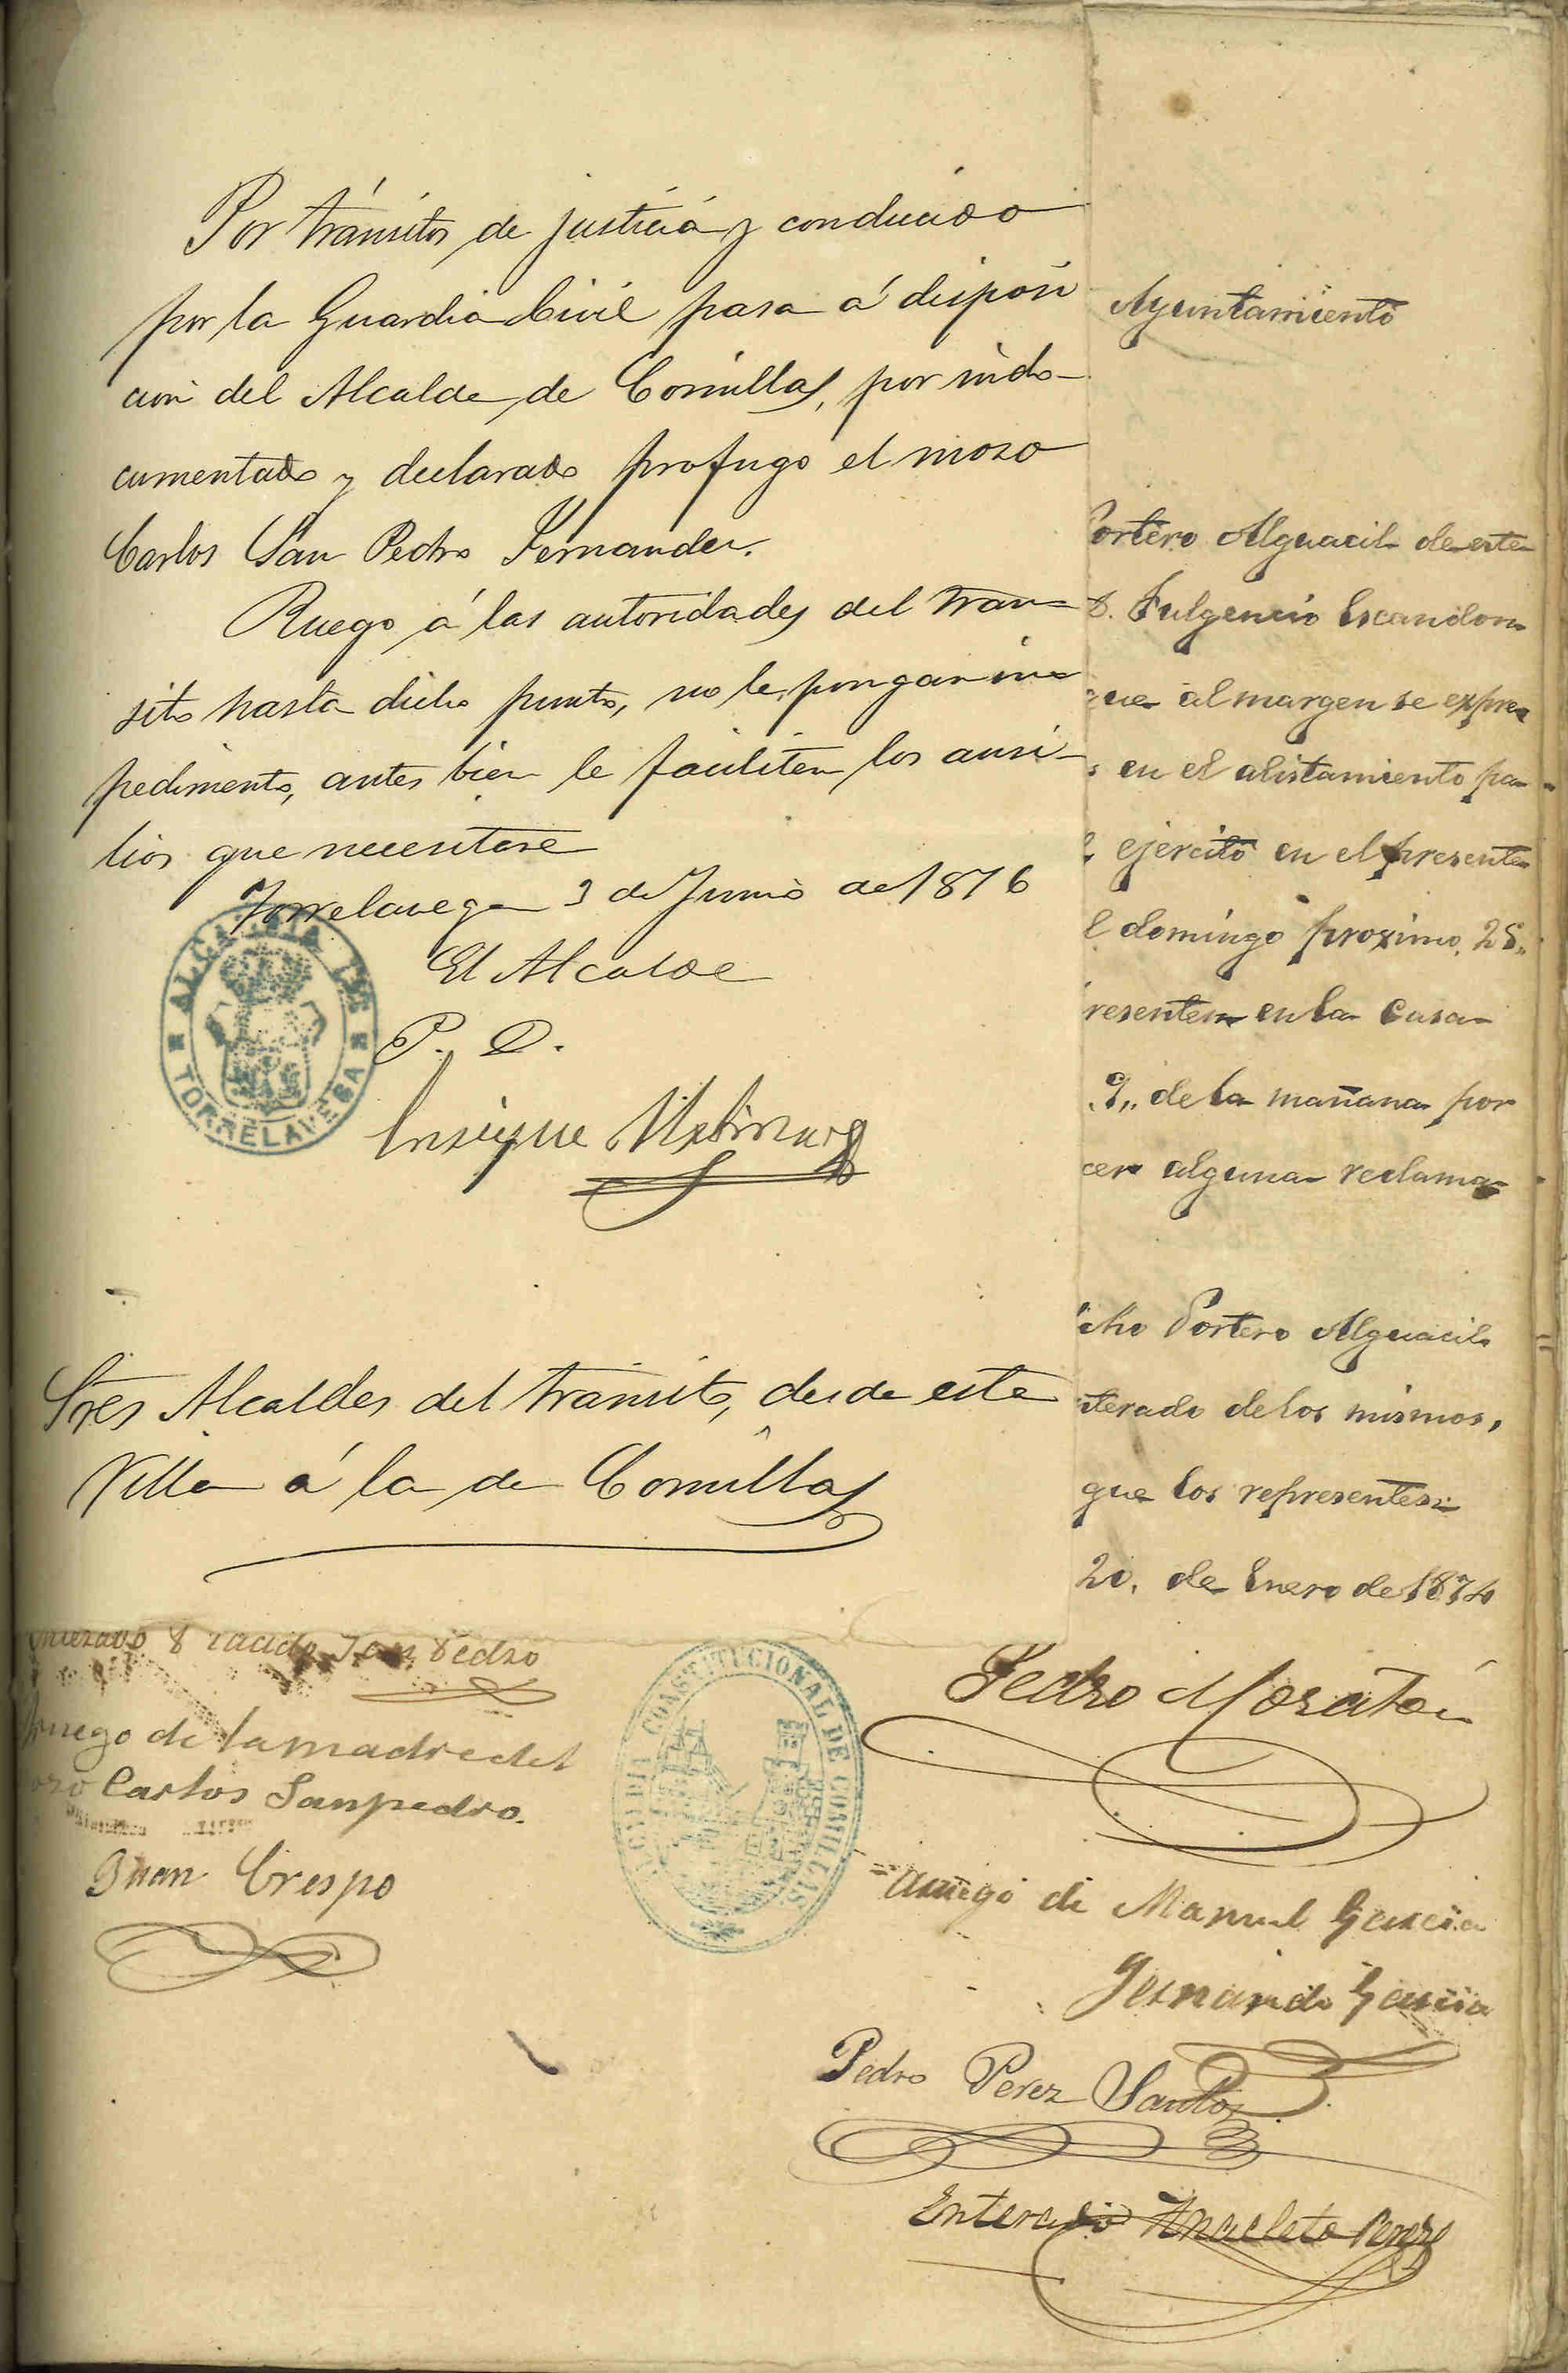 Por tránsitos de justicia y conducido
por la Guardia Civil pasa á disposi
cion del Alcalde de Comillas, por indo-
cumentado y declarado profugo el moso
Carlos San Pedro Fernandez.
Ruego á las autoridades del tran=
sito hasta dicho punto, no le pongan im=
pedimento, antes bien le faciliten los ausi-
lios que necesitase
Torrelavega 3 de Junio de 1876
El Alcalde
P. O.
Enrique
ALCALDIA DE
TORRELAVEGA
Sres Alcaldes del tránsito, desde esta
Villa á la de Comillas
Ayuntamiento
Portero Alguacil de este
D. Fulgencio Escandon
que al margen se expre
s en el alistamiento pa-
l ejercito en el presente
l domingo proximo, 25,,
resenten en la Casa
9,, de la mañana por
cer alguna reclama-
icho Portero Alguacil
terado de los mismos,
que los representen
20, de Enero de 1874
Pedro Moratón
San Pedro
ruego de la madre del
ozo Carlos Sanpedro.
Juan Crespo
ALCALDIA CONSTITUCIONAL DE COMILLAS
=Aruego de Manuel Garcia
Fernando Garcia
Pedro Perez Santos
Enterado Anacleto Perez